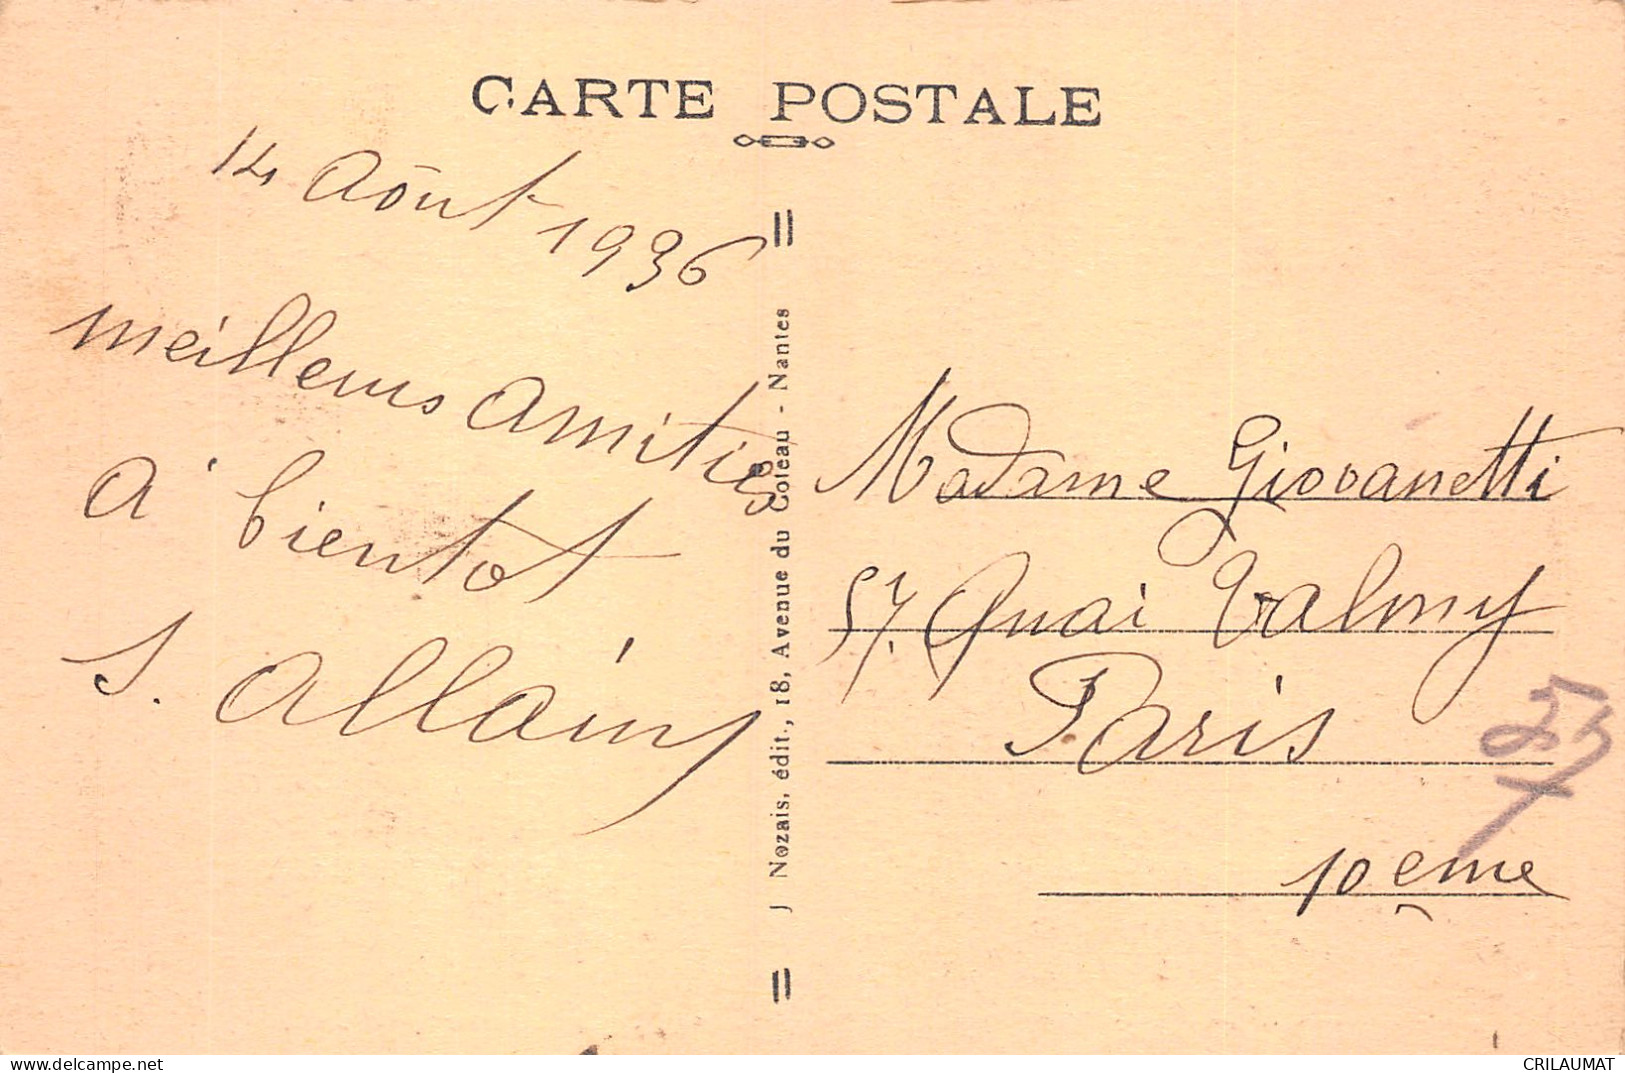 CARTE POSTALE
14 Août 1936
meilleurs amitiés
A bientot
S. Allain
J Nozais, édit., 18, Avenue du Coteau - Nantes
Madame Giovanetti
57. Quai Valmy
Paris
10 eme
www.delcampe.net
CRILAUMAT